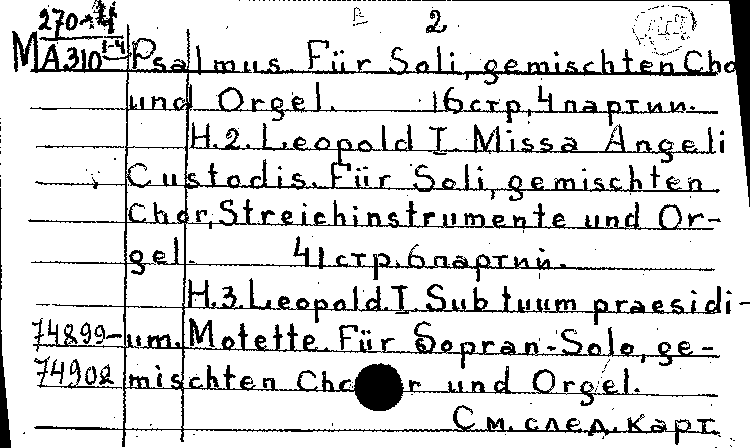 270-4 2
MA310 1-4 Psalmus. Für Soli, gemischten Cho
und Orgel. 16 стр, 4 партии.
H.2. Leopold I. Missa Angeli
Custodis. Für Soli, gemischten
Chor, Streichinstrumente und Or-
gel. 41 стр. 6 партий.
H.3. Leopold. I. Sub tuum praesidi-
74899- um. Motette. Für Sopran-Solo, ge-
74902 mischten Cho r und Orgel.
См. след. карт.